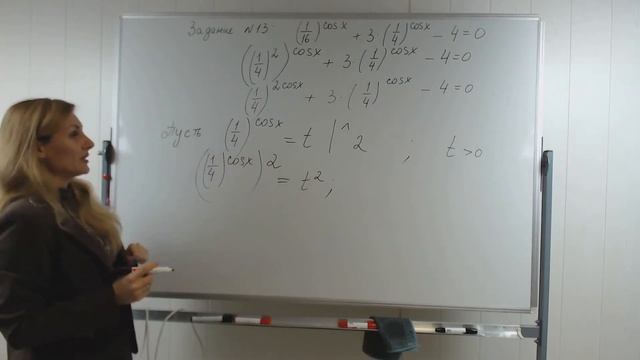 Задание №13: (1/16)^cosx + 3·(1/4)^cosx − 4 = 0
((1/4)^2)^cosx + 3·(1/4)^cosx − 4 = 0
(1/4)^2cosx + 3·(1/4)^cosx − 4 = 0
Пусть (1/4)^cosx = t |^2 ; t > 0
((1/4)^cosx)^2 = t^2;